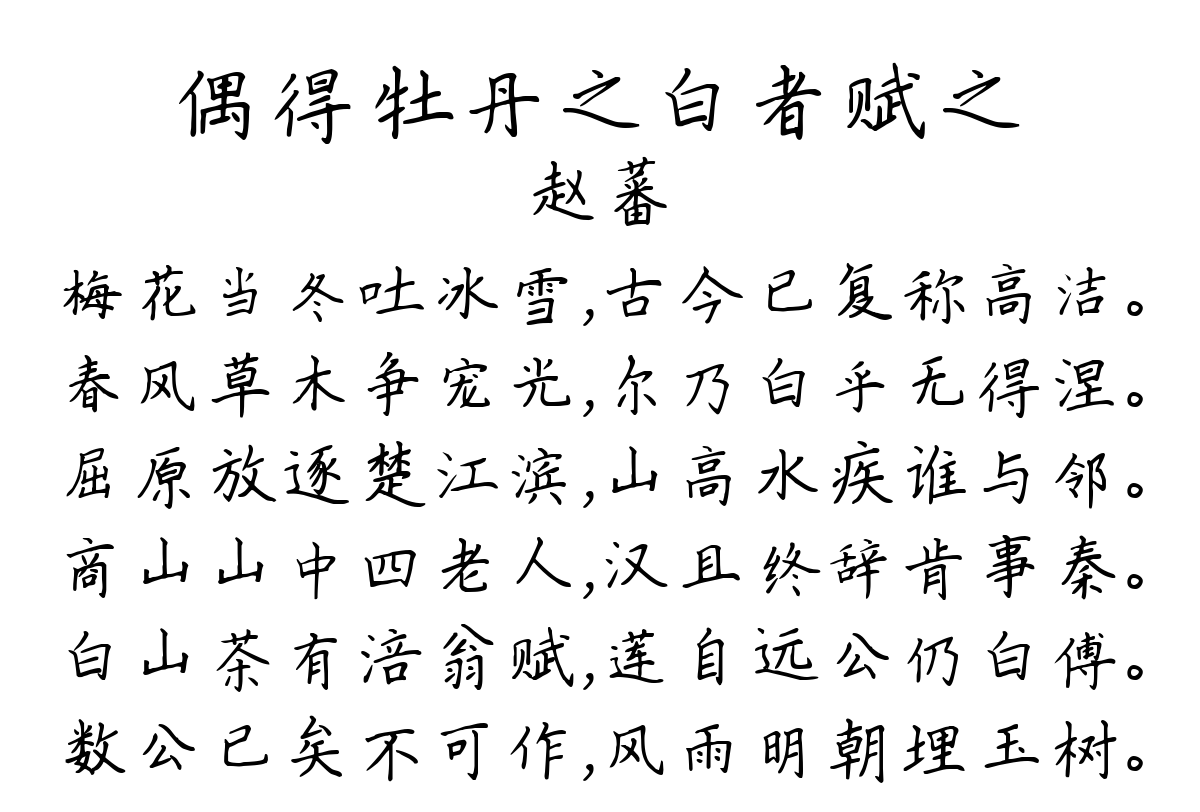 偶得牡丹之白者赋之
赵蕃
梅花当冬吐冰雪,古今已复称高洁。
春风草木争宠光,尔乃白乎无得涅。
屈原放逐楚江滨,山高水疾谁与邻。
商山山中四老人,汉且终辞肯事秦。
白山茶有涪翁赋,莲自远公仍白傅。
数公已矣不可作,风雨明朝埋玉树。